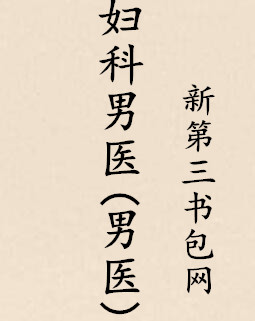 妇科男医(男医)
新第三书包网